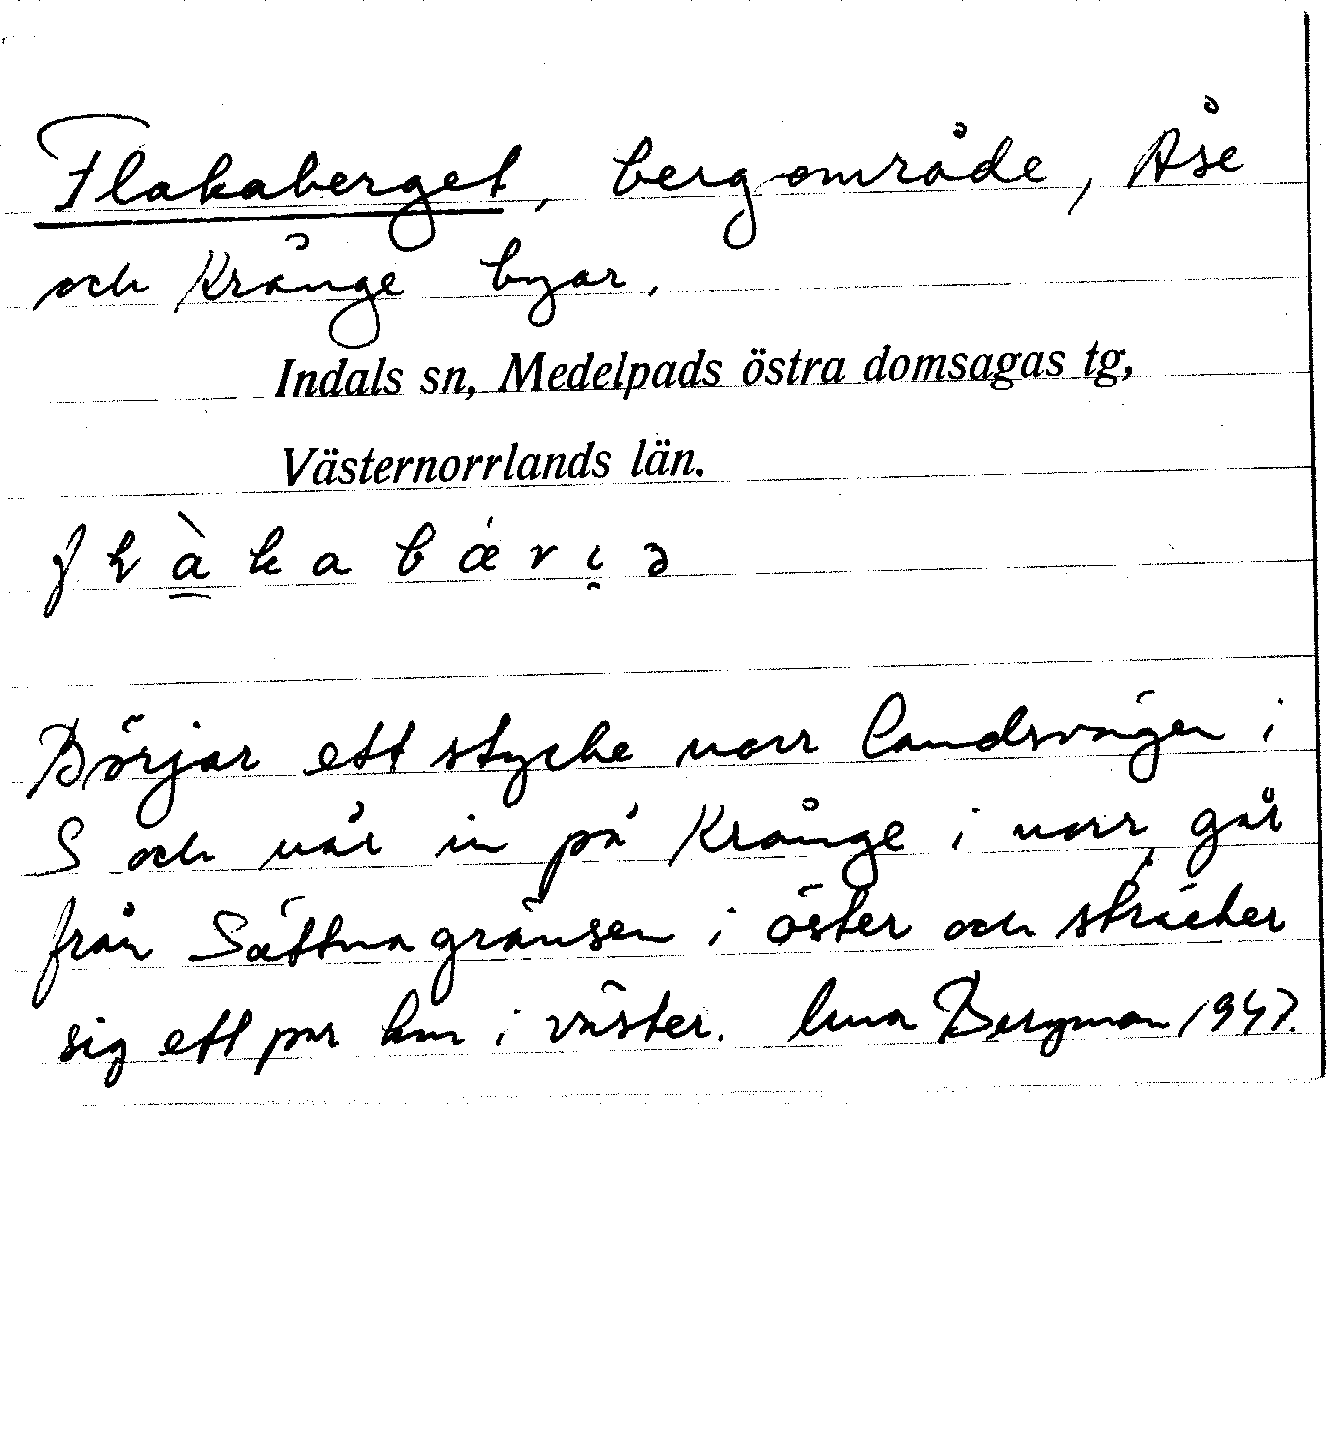 Flakaberget, bergområde, Åse
och Krånge byar.
Indals sn, Medelpads östra domsagas tg,
Västernorrlands län.
Börjar ett stycke norr landsvägen i
S och når in på Krånge i norr, går
från Sättnagränsen i öster och sträcker
sig ett par km i väster. Bergman 1947.